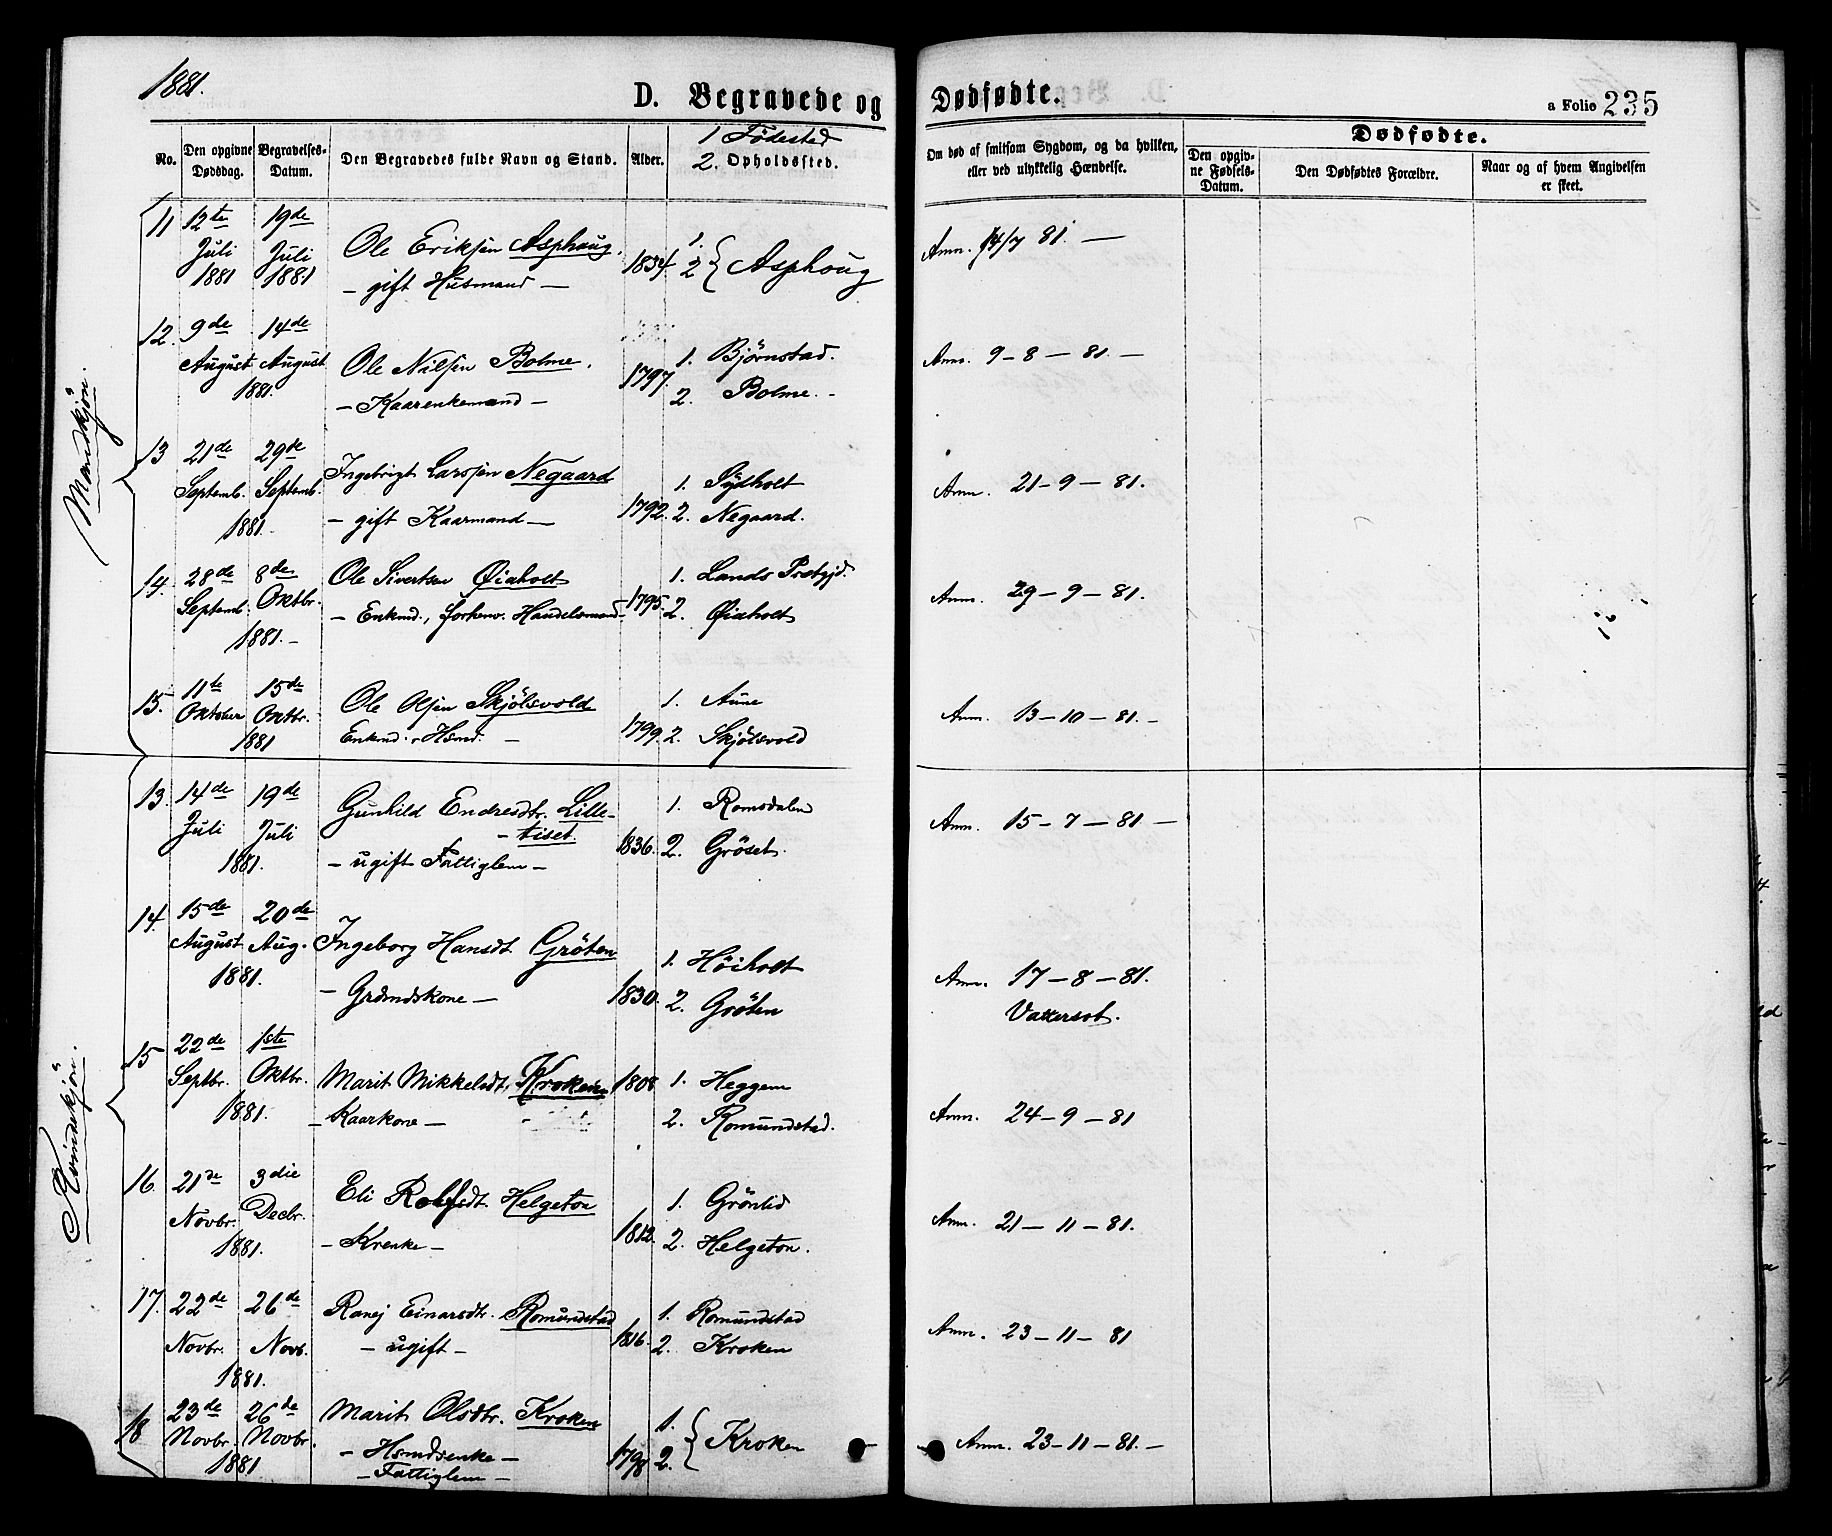 1881.
D. Begravede og Dødfødte.
a Folio 235
No.
Den opgivne Dødsdag.
Begravelses-Datum.
Den Begravedes fulde Navn og Stand.
Alder.
1 Fødested
2. Opholdssted.
Om død af smitsom Sygdom, og da hvilken,
eller ved ulykkelig Hændelse.
Dødfødte.
Den opgiv-
ne Fødsels-
Datum.
Den Dødfødtes Forældre.
Naar og af hvem Angivelsen
er skeet.
Mandkjön.
11 12te Juli 1881 19de Juli 1881
Ole Eriksen Asphaug,
- gift Husmand -
1834. 1. 2 { Asphoug
Anm. 14/7 81. -
12. 9de August 14de August 1881.
Ole Nilsen Bolme.
- Kaarenkemand -
1797. 1. Bjørnstad.
2. Bolme. -
Anm. 9 - 8 - 81. -
13 21de Septemb. 29de Septemb. 1881.
Ingebrigt Larssen Negaard
- gift Kaarmand -
1792. 1. Sydholt
2. Negaard.
Anm. 21 - 9 - 81.
14. 28de Septemb. 8de Oktbr. 1881. -
Ole Sivertsen Øiaholt
- Enkmd., forhenv. Handelsmand -
1795. 1. Lands Prstgjd.
2. Øiaholt
Anm. 29 - 9 - 81.
15. 11te Oktober 15de Oktbr. 1881
Ole Olsen Skjölsvold
Enkmd., Hsmd. -
1799. 1. Aune
2. Skjölsvold
Anm. 13 - 10 - 81. -
Kvindekjön.
13. 14de Juli 19de Juli 1881.
Gunhild Endresdtr. Lille-
- tiset.
- ugift Fattiglem -
1836. 1. Romsdalen
2. Gröset.
Anm. 15 - 7 - 81 -
14. 15de August 20de Aug. 1881.
Ingeborg Hansdt. Gröten
- Grdmdskone -
1830. 1. Höiholt
2. Gröten
Anm. 17 - 8 - 81.
Vattersot.
15 22de Septbr. 1ste Oktbr. 1881.
Marit Mikkelsdt. Kroken
- Kaarkone -
1808 1. Heggem
2. Romundstad.
Anm. 24 - 9 - 81
16. 21de Novbr. 3die Decbr. 1881.
Eli Rolfsdt. Helgeton
- Krenke -
1812. 1. Grönlid
2. Helgeton.
Anm. 21 - 11 - 81.
17. 22de Novbr. 26de Novb. 1881.
Ranej Einarsdtr. Romundstad
- ugift -
1816. 1. Romundstad
2. Kroken
Anm. 23 - 11 - 81
18 23de Novbr. 26de Novbr. 1881
Marit Olsdtr. Kroken
- Hsmdsenke -
- Fattiglem -
1798 1. 2. { Kroken
Anm. 23 - 11 - 81. -